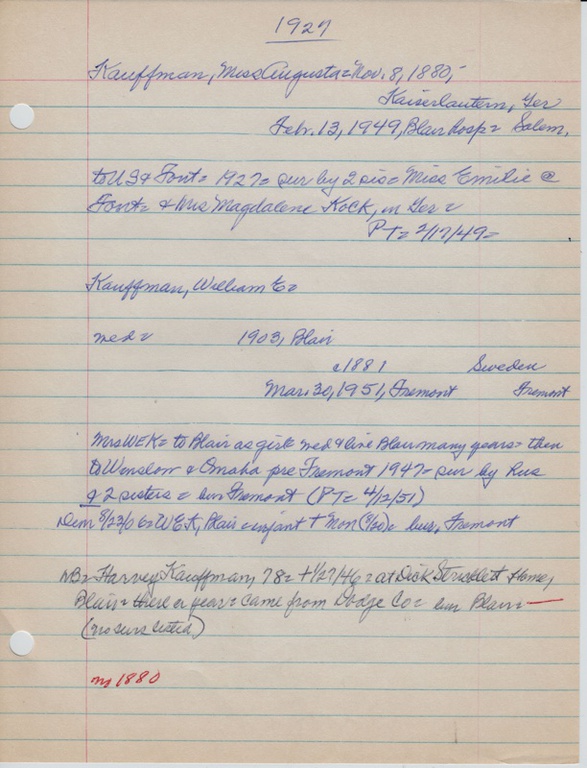 1927
Kauffman, Miss Augusta = Nov. 8, 1880,-
Kaiserlautern, Ger
Feb. 13, 1949, Blair Hosp = Salem,
to US & Font = 1927 = sur by 2 sis = Miss Emilie @
Font = & Mrs Magdalene Kock, in Ger =
PT = 2/17/49 =
Kauffman, William E =
med = 1903, Blair
c1881 Sweden
Mar. 30, 1951, Fremont Fremont
Mrs WEK = to Blair as girl = med & live Blair many years = then
to Winslow & Omaha pre Fremont 1947 = sur by hus
& 2 sisters = bur Fremont (PT = 4/12/51)
Dem 8/23/06 = WEK, Blair = infant + Mon (8/20) = bus, Fremont
NB = Harvey Kauffman, 78 = + 1/27/46 = at Dick Stricklett Home,
Blair = there a year = came from Dodge Co = bur Blair =
(no surs listed)
no 1880